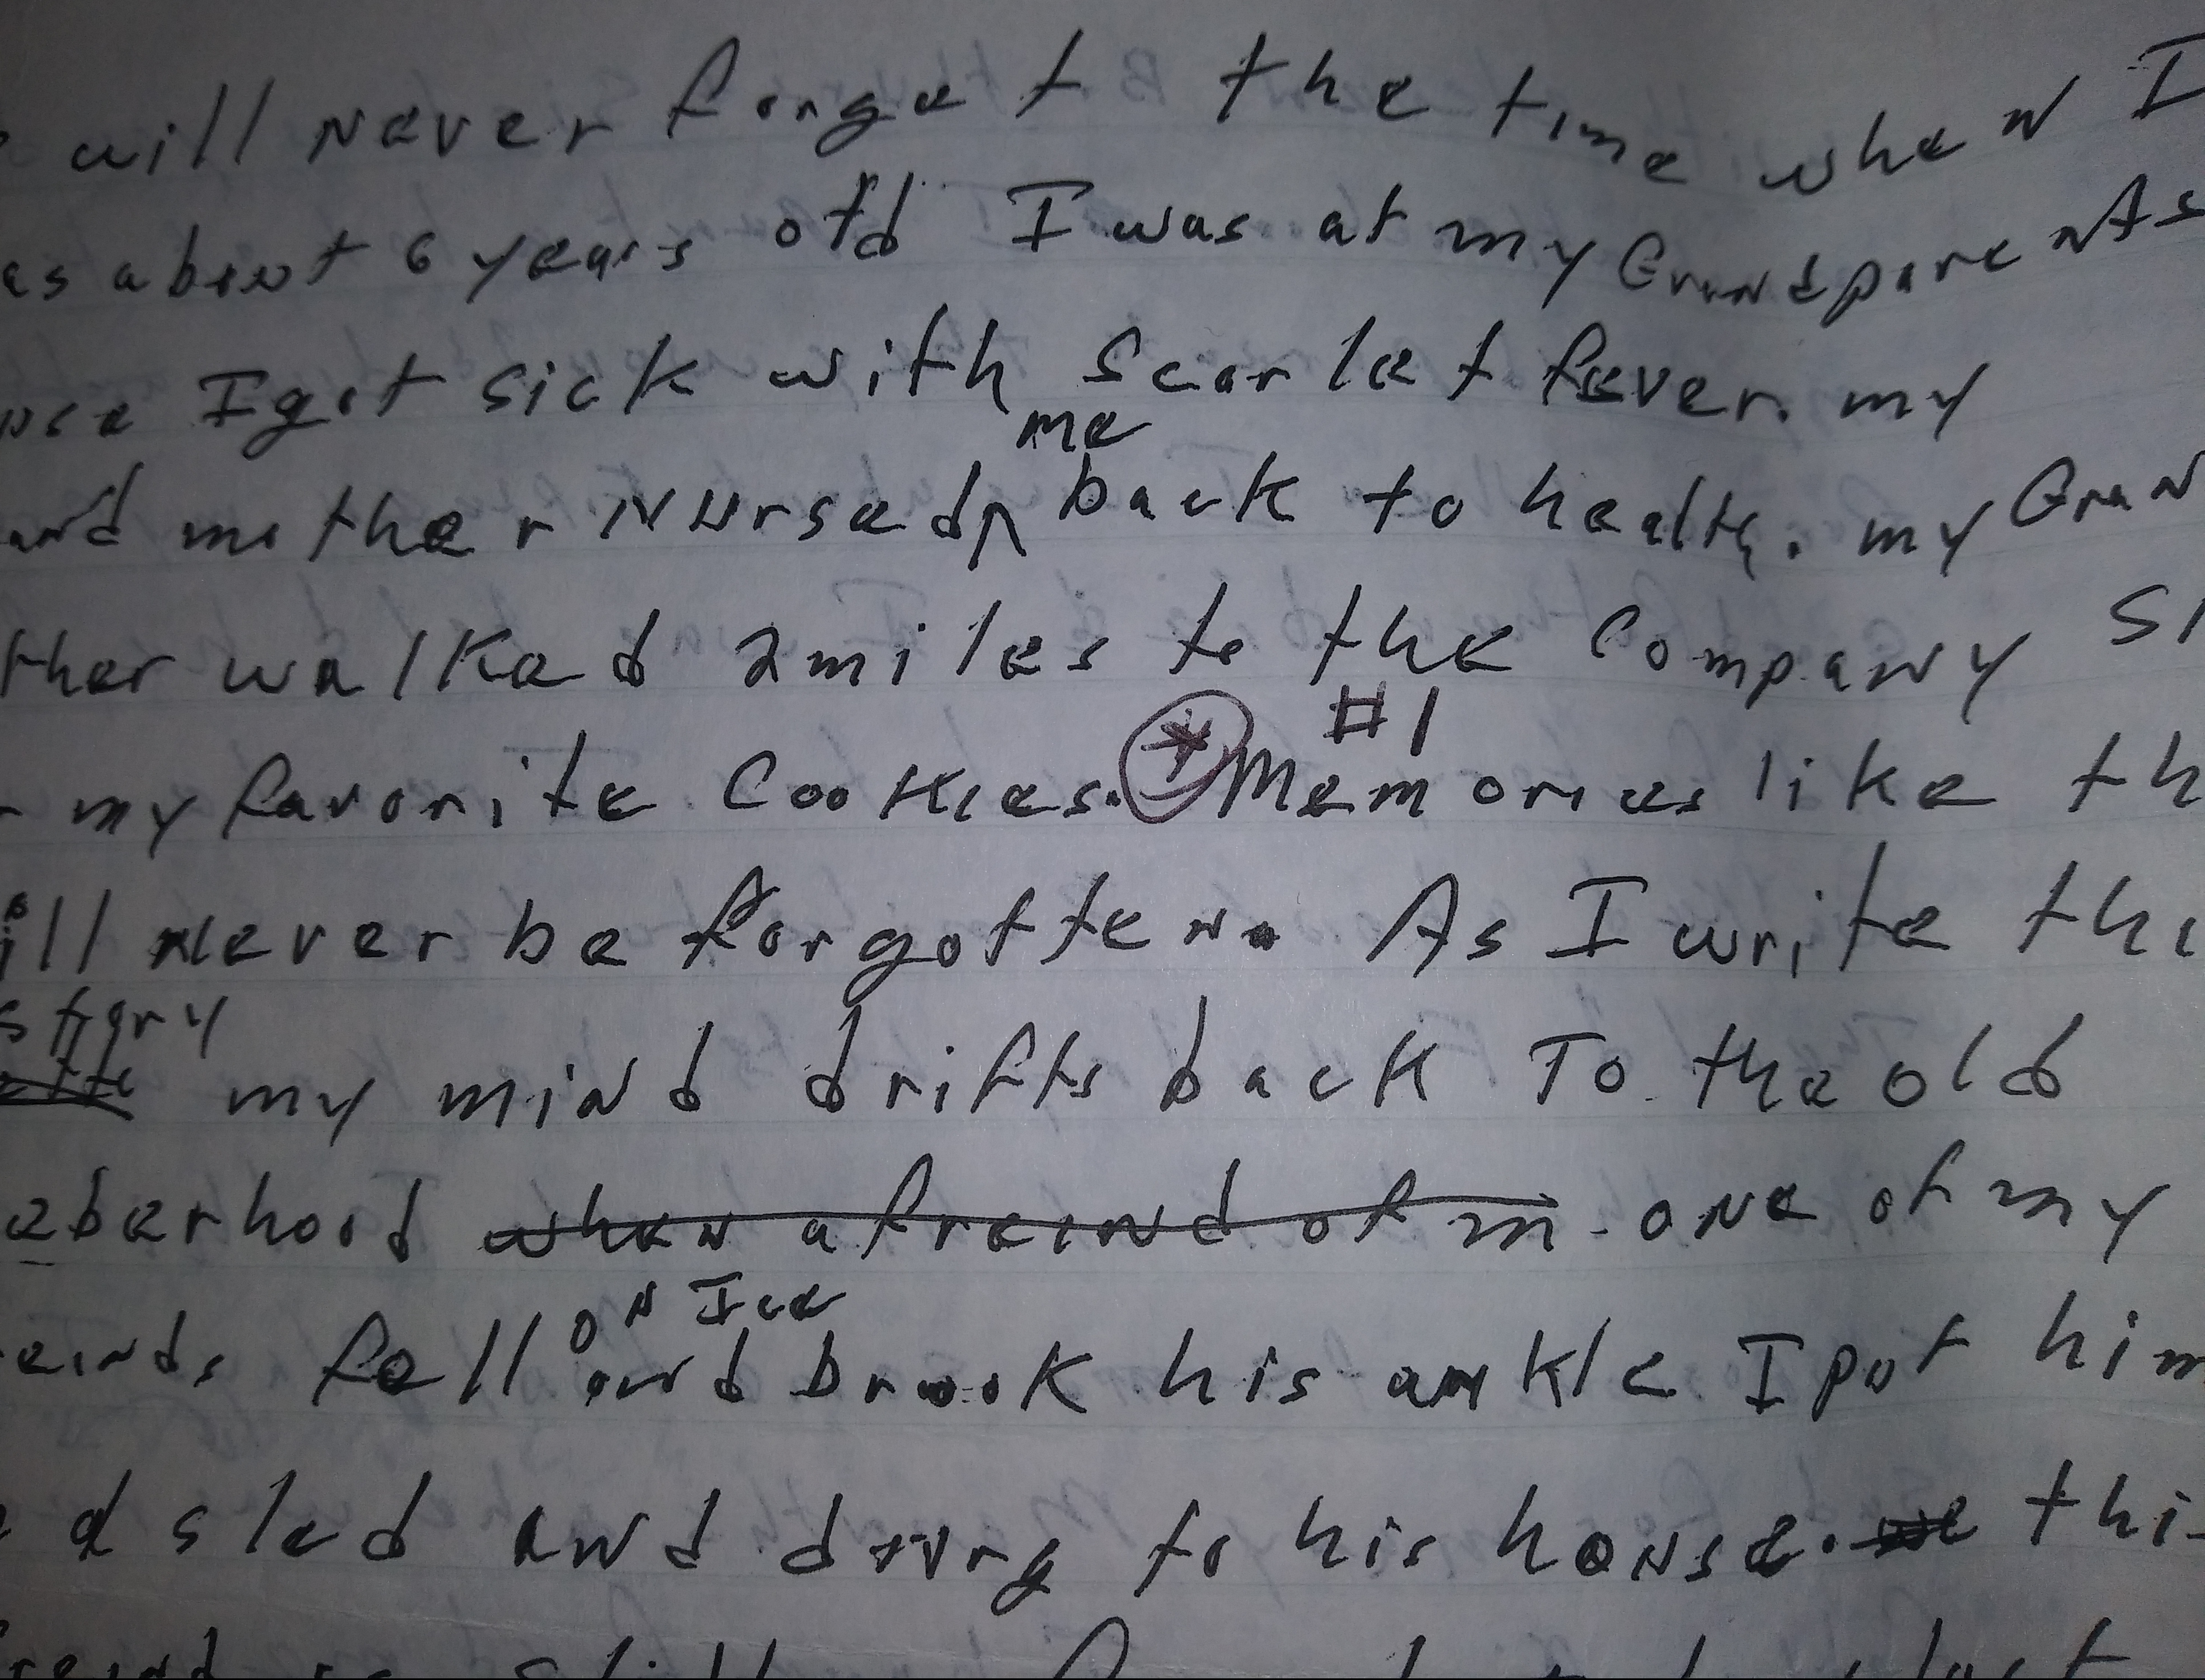 will never forget the time when I
as about 6 years old I was at my Grandparents
use I got sick with scarlet fever. my
me
and mother Nursed^ back to health. my Gran
ther walked 2 miles to the Company St
#1
my favorite Cookies. * Memories like th
ill never be forgotten. As I write thi
story
my mind drifts back To the old
eberhood when a freind of m one of my
on Ice
einds, fell and brook his ankle I put him
a sled and drug to his house. thi
freind is still last